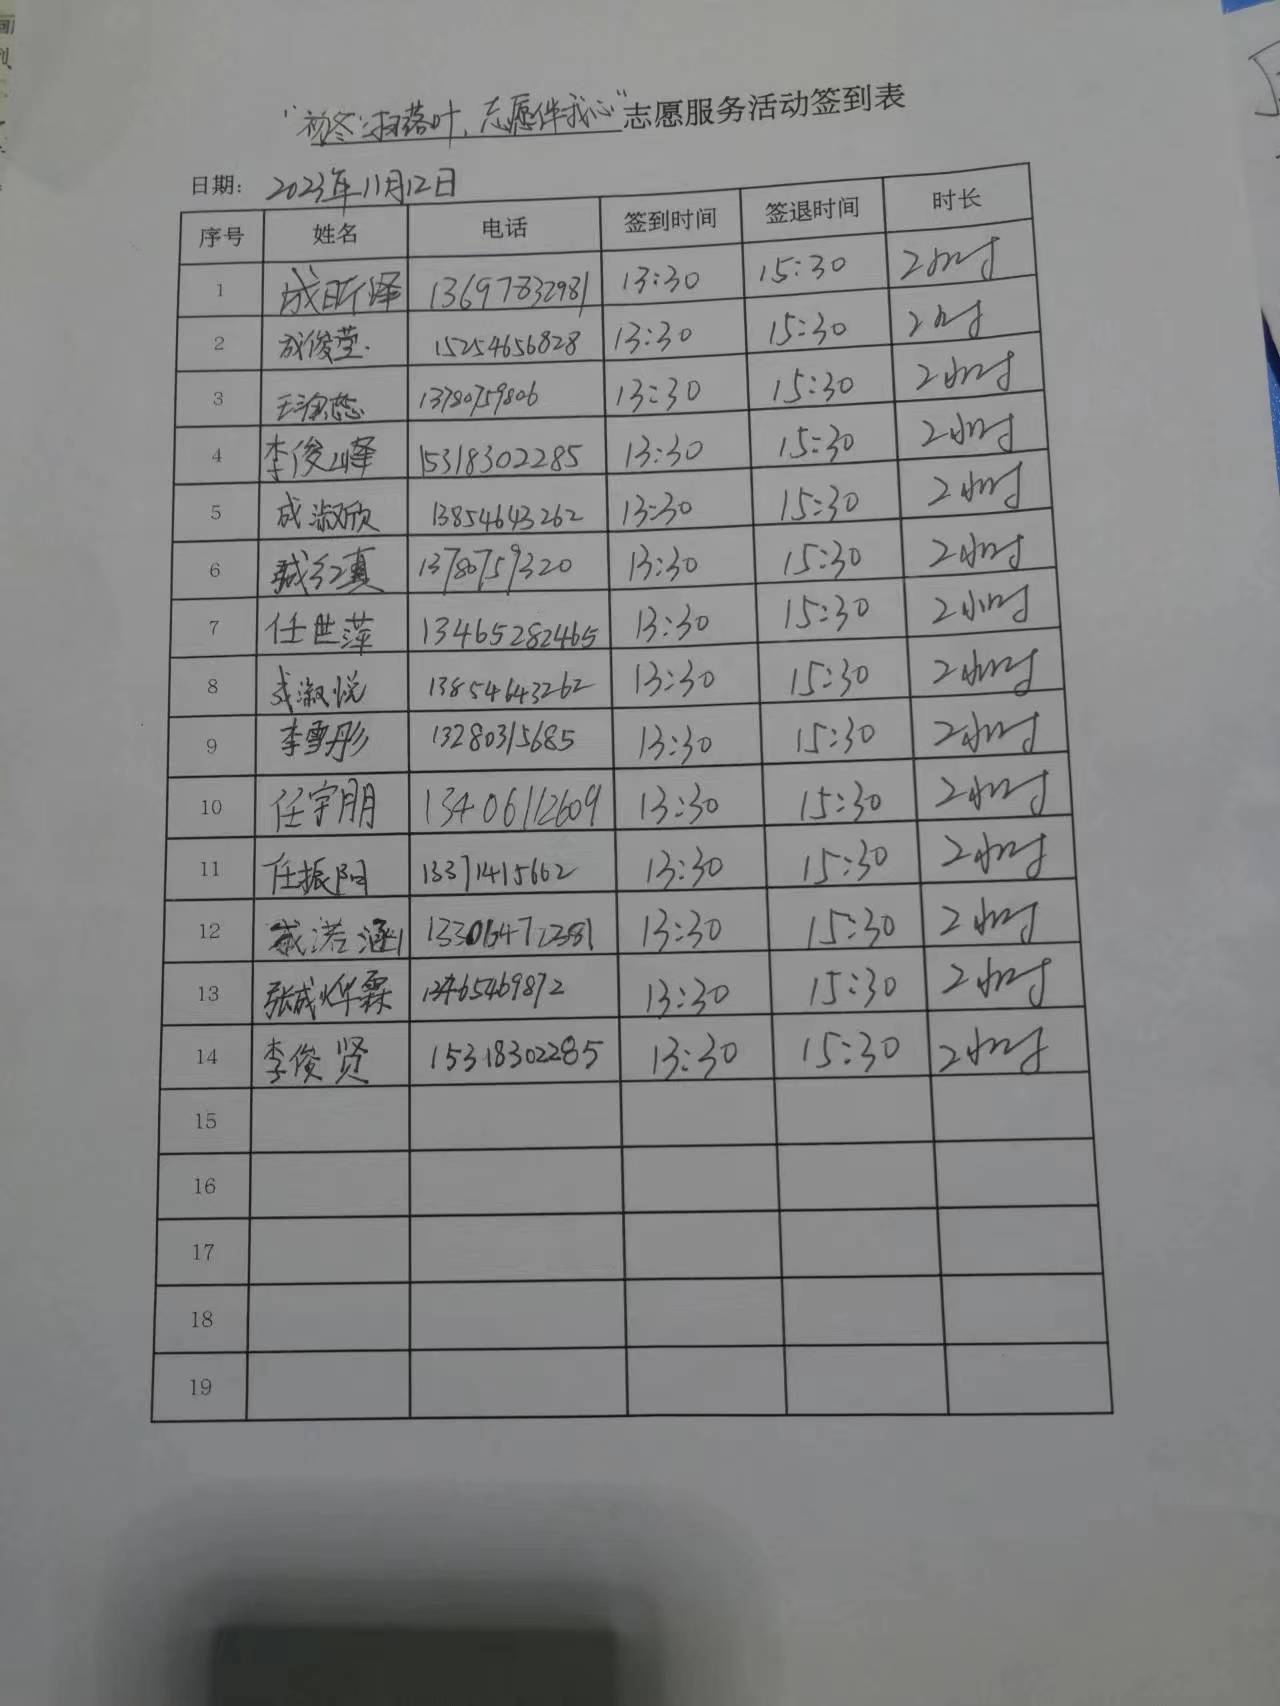 “初冬扫落叶，志愿伴我心”志愿服务活动签到表
日期： 2023年11月12日
序号 姓名 电话 签到时间 签退时间 时长
1 成昕泽 13697832981 13:30 15:30 2小时
2 成俊莹 15254656828 13:30 15:30 2小时
3 13780759806 13:30 15:30 2小时
4 李俊峰 15318302285 13:30 15:30 2小时
5 成淑欣 13854643262 13:30 15:30 2小时
6 13780759320 13:30 15:30 2小时
7 任世萍 13465282465 13:30 15:30 2小时
8 成淑悦 13854643262 13:30 15:30 2小时
9 李雪彤 13280315685 13:30 15:30 2小时
10 任宇朋 13406112609 13:30 15:30 2小时
11 任振阳 13371415662 13:30 15:30 2小时
12 13:30 15:30 2小时
13 张成烨霖 13465469872 13:30 15:30 2小时
14 李俊贤 15318302285 13:30 15:30 2小时
15
16
17
18
19